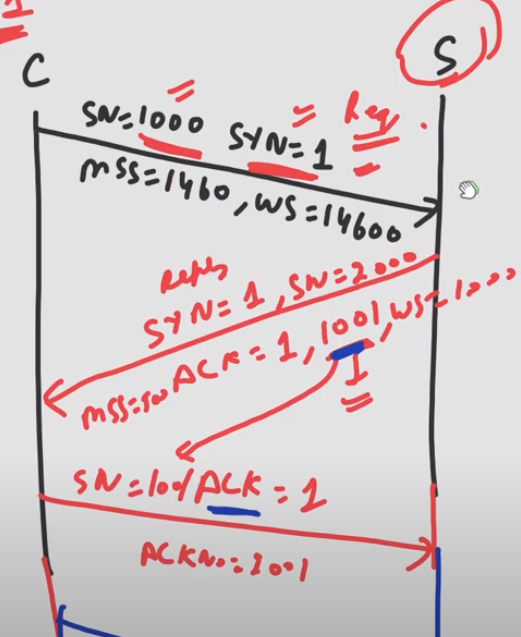 1
C
S
SN=1000 SYN=1 Req.
MSS=1460, WS=14600
Reply
SYN=1, SN=2000
ACK=1, 1001, WS=1000
MSS=500
1
SN=1001 ACK=1
ACKNo=2001